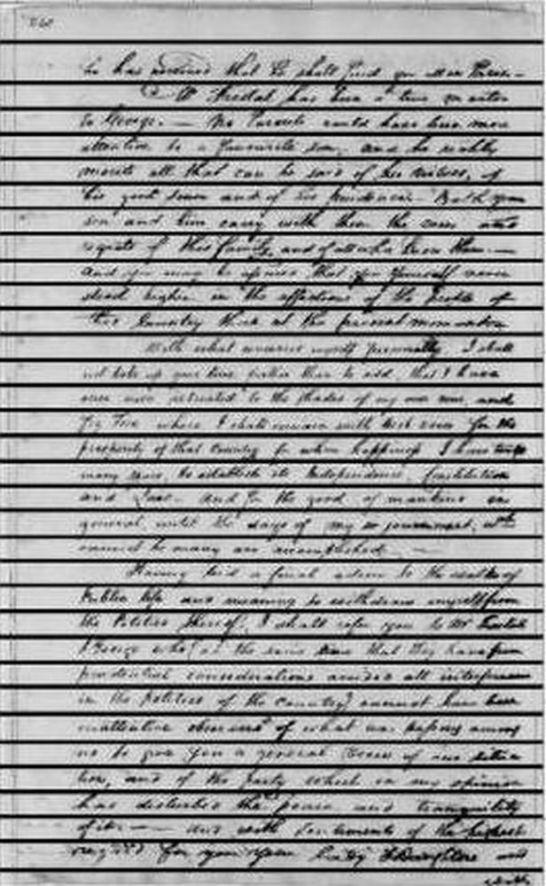 he has received that he shall find you
Mr Frestal has been a true
to George. — No Parents could have been more
attentive to a favourite son; and he richly
merits all that can be said of his virtues, of
his good sense and of his prudence. Both your
son and him carry with them the vows and
regrets of this family, and of all who know them. —
and you may be assured that you yourself never
stood higher in the affections of the People of
this Country than at the present moment
With what concerns myself personally, I shall
not take up your time further than to add, that I have
once more retreated to the shades of my own vine and
Fig Tree where I shall remain with best vows for the
prosperity of that country for whose happiness I have
many years, to establish its Independence, Constitution
and Laws. And for the good of mankind in
general, until the days of my sojournment, wch
cannot be many are accomplished. —
Having bid a final adieu to the walks of
Public life and meaning to withdraw myself from
the Politics thereof, I shall refer you to Mr Frestal
& George who (at the same time that they have from
prudential considerations avoided all interference
in the Politics of the country) cannot have been
inattentive observers of what was passing among
us to give you a general view of our situa
tion, and of the party which in my opinion
has disturbed the peace and tranquility
of it. — And with sentiments of the highest
regard for you your Lady & Daughters and